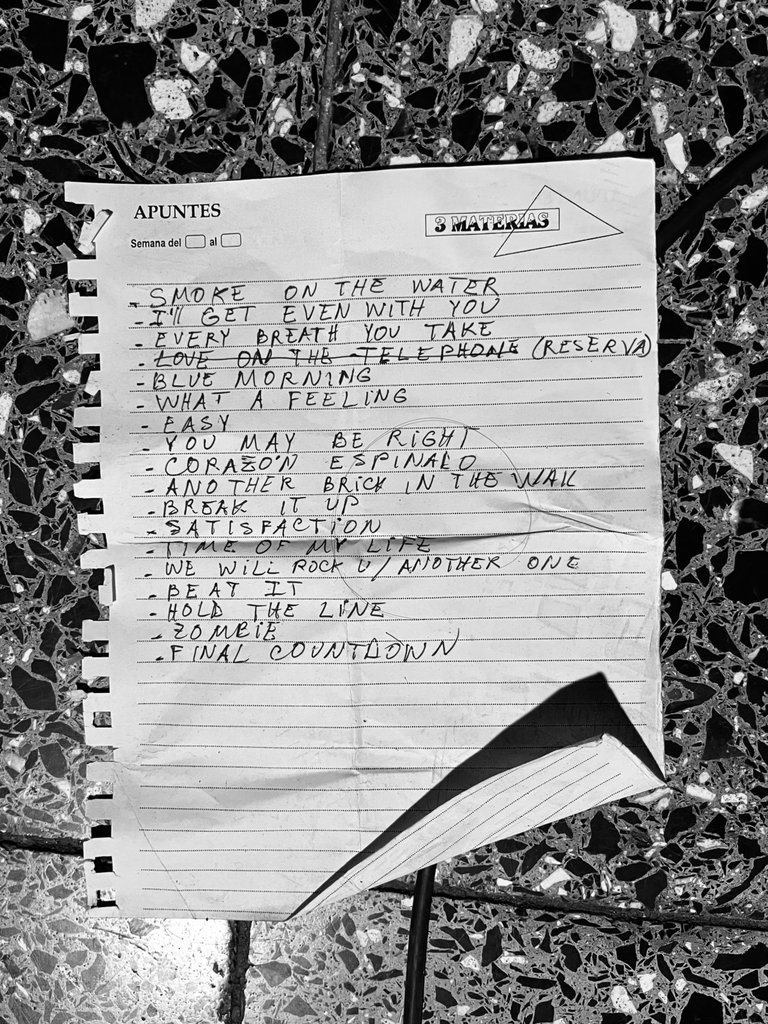 APUNTES
3 MATERIAS
Semana del al
- SMOKE ON THE WATER
- I'll GET EVEN WITH YOU
- EVERY BREATH YOU TAKE
- LOVE ON THE TELEPHONE (RESERVA)
- BLUE MORNING
- WHAT A FEELING
- EASY
- YOU MAY BE RIGHT
- CORAZON ESPINADO
- ANOTHER BRICK IN THE WALL
- BREAK IT UP
- SATISFACTION
- TIME OF MY LIFE
- WE WILL ROCK U/ANOTHER ONE
- BEAT IT
- HOLD THE LINE
- ZOMBIE
- FINAL COUNTDOWN